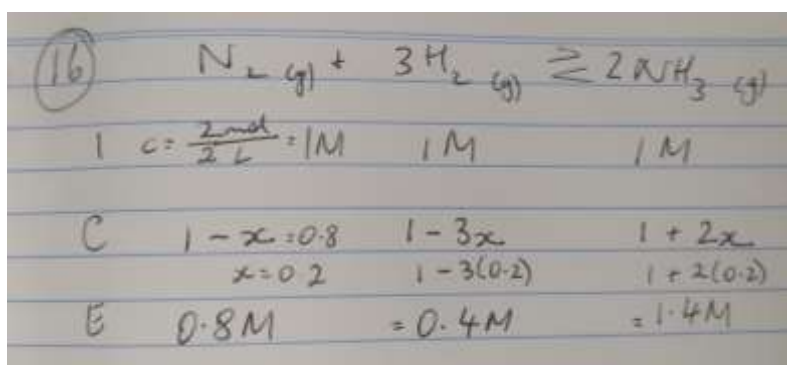 16 N₂ (g) + 3H₂ (g) ⇌ 2NH₃ (g)
I c = 2mol/2 L = 1M 1M 1M
C 1 - x = 0.8 1 - 3x 1 + 2x
x = 0.2 1 - 3(0.2) 1 + 2(0.2)
E 0.8M = 0.4M = 1.4M